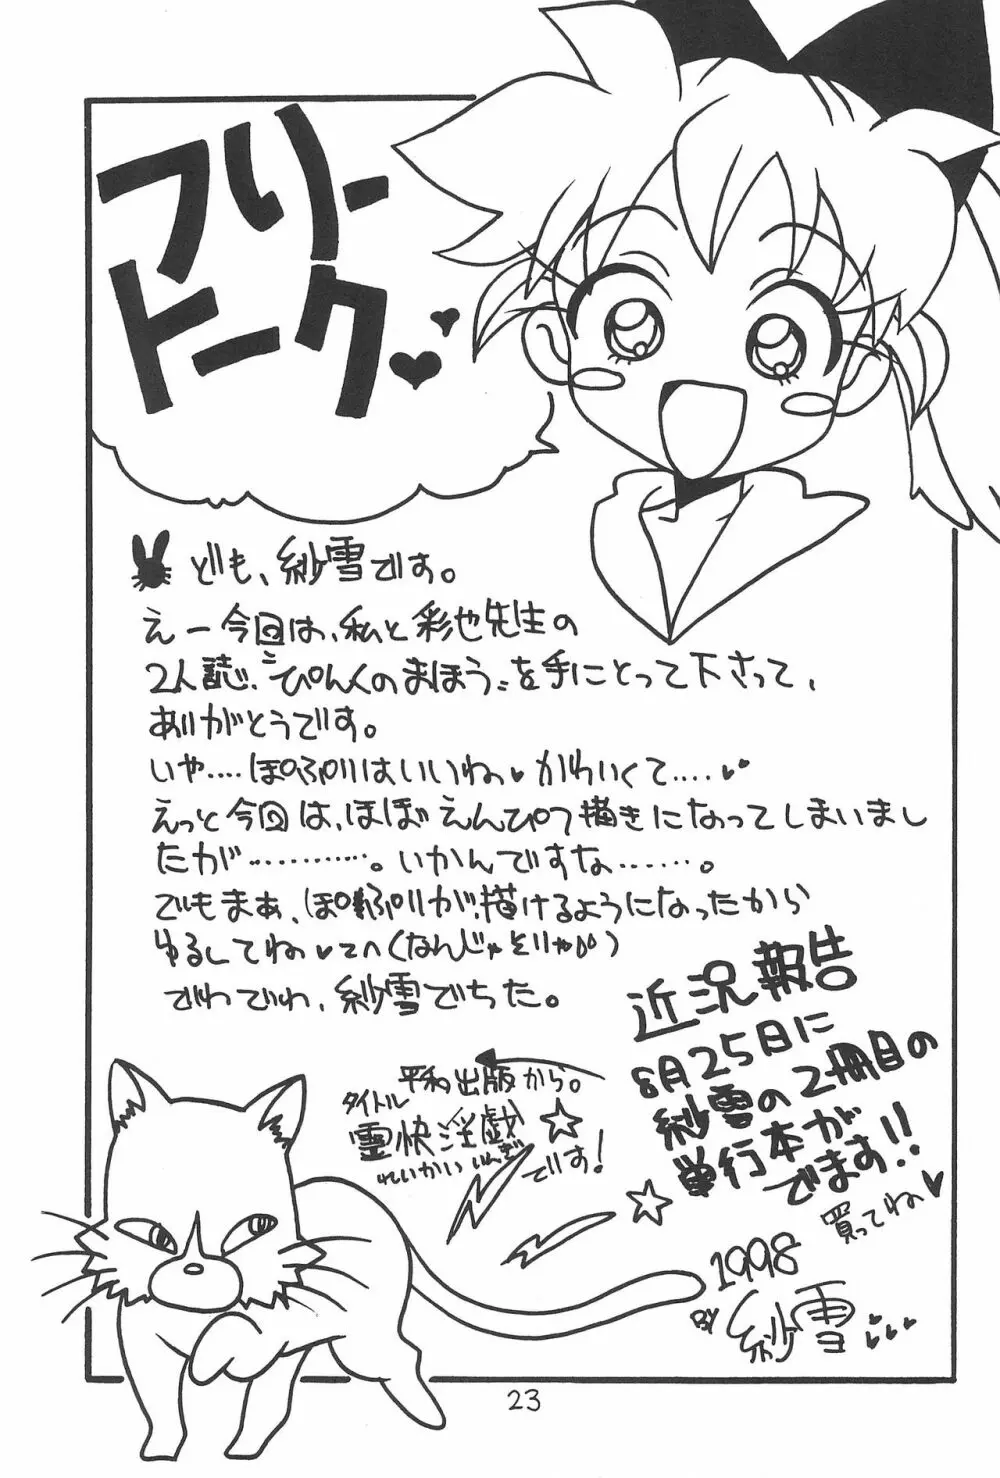 フリー
トーク
ども、紗雪です。
えー今回は、私と彩也先生の
2人誌〝ぴんくのまほう〟を手にとって下さって、
ありがとうです。
いや‥‥ぽぷりはいいね♥かわいくて‥‥♥♥
えっと今回は、ほぼえんぴつ描きになってしまいまし
たが…………。いかんですな……。
でもまぁ、ぽぷりが描けるようになったから
ゆるしてね♥てへ(なんじゃそりゃ)
でわでわ、紗雪でちた。
近況報告
8月25日に
紗雪の2冊目の
単行本が
でます!!
買ってね♥
平和出版から。
タイトル
霊快淫戯
れいかいいんぎ
です!
1998
BY 紗雪
23